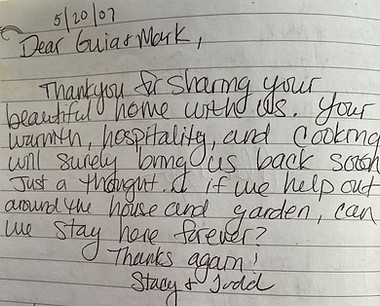 5/20/07
Dear Guia & Mark,
Thankyou for Sharing your
beautiful home with us. Your
warmth, hospitality, and cooking
will surely bring us back soon
Just a thought.. if we help out
around the house and garden, can
we stay here forever?
Thanks again!
Stacy & Judd